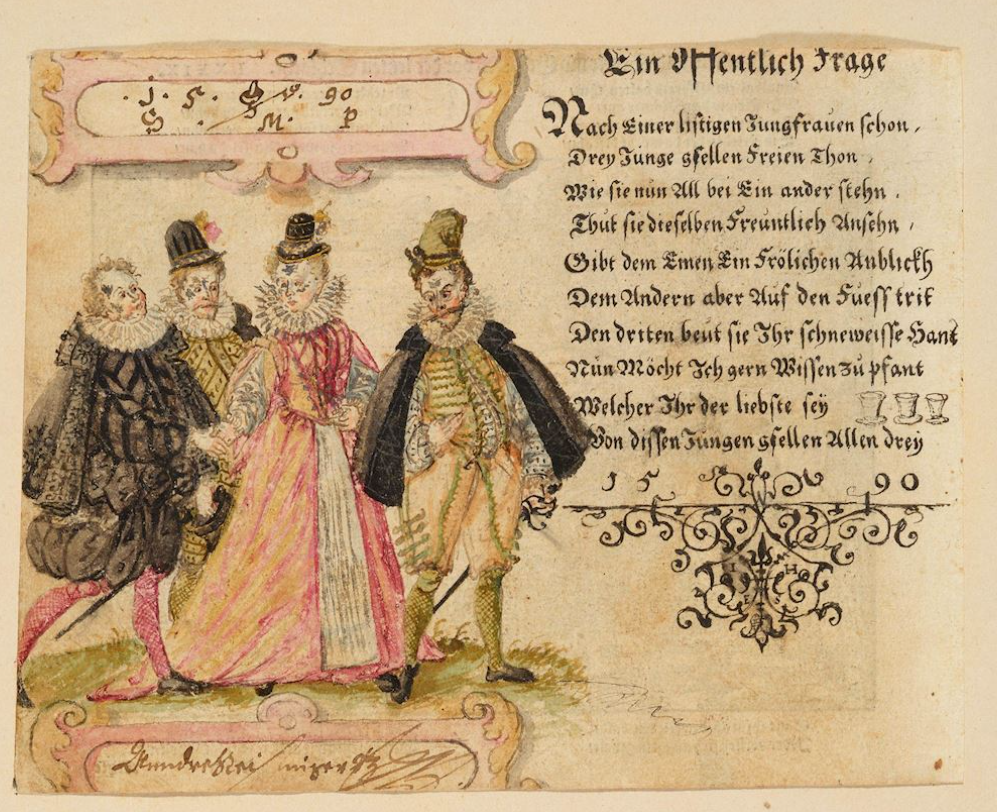 . J . 5 . 90
S . M . P
Ein Offentlich Frage
Nach Einer listigen Jungfrauen schon ,
Drey Junge gsellen Freien Thon ,
Wie sie nun All bei Ein ander stehn .
Thut sie dieselben Freuntlich Ansehn ,
Gibt dem Einen Ein Frölichen Anblickh
Dem Andern aber Auf den Fuess trit
Den dritten beut sie Ihr schneweisse Hant
Nun Möcht Ich gern Wissen zu pfant
Welcher Ihr der liebste sey
Von dissen Jungen gsellen Allen drey
15 90